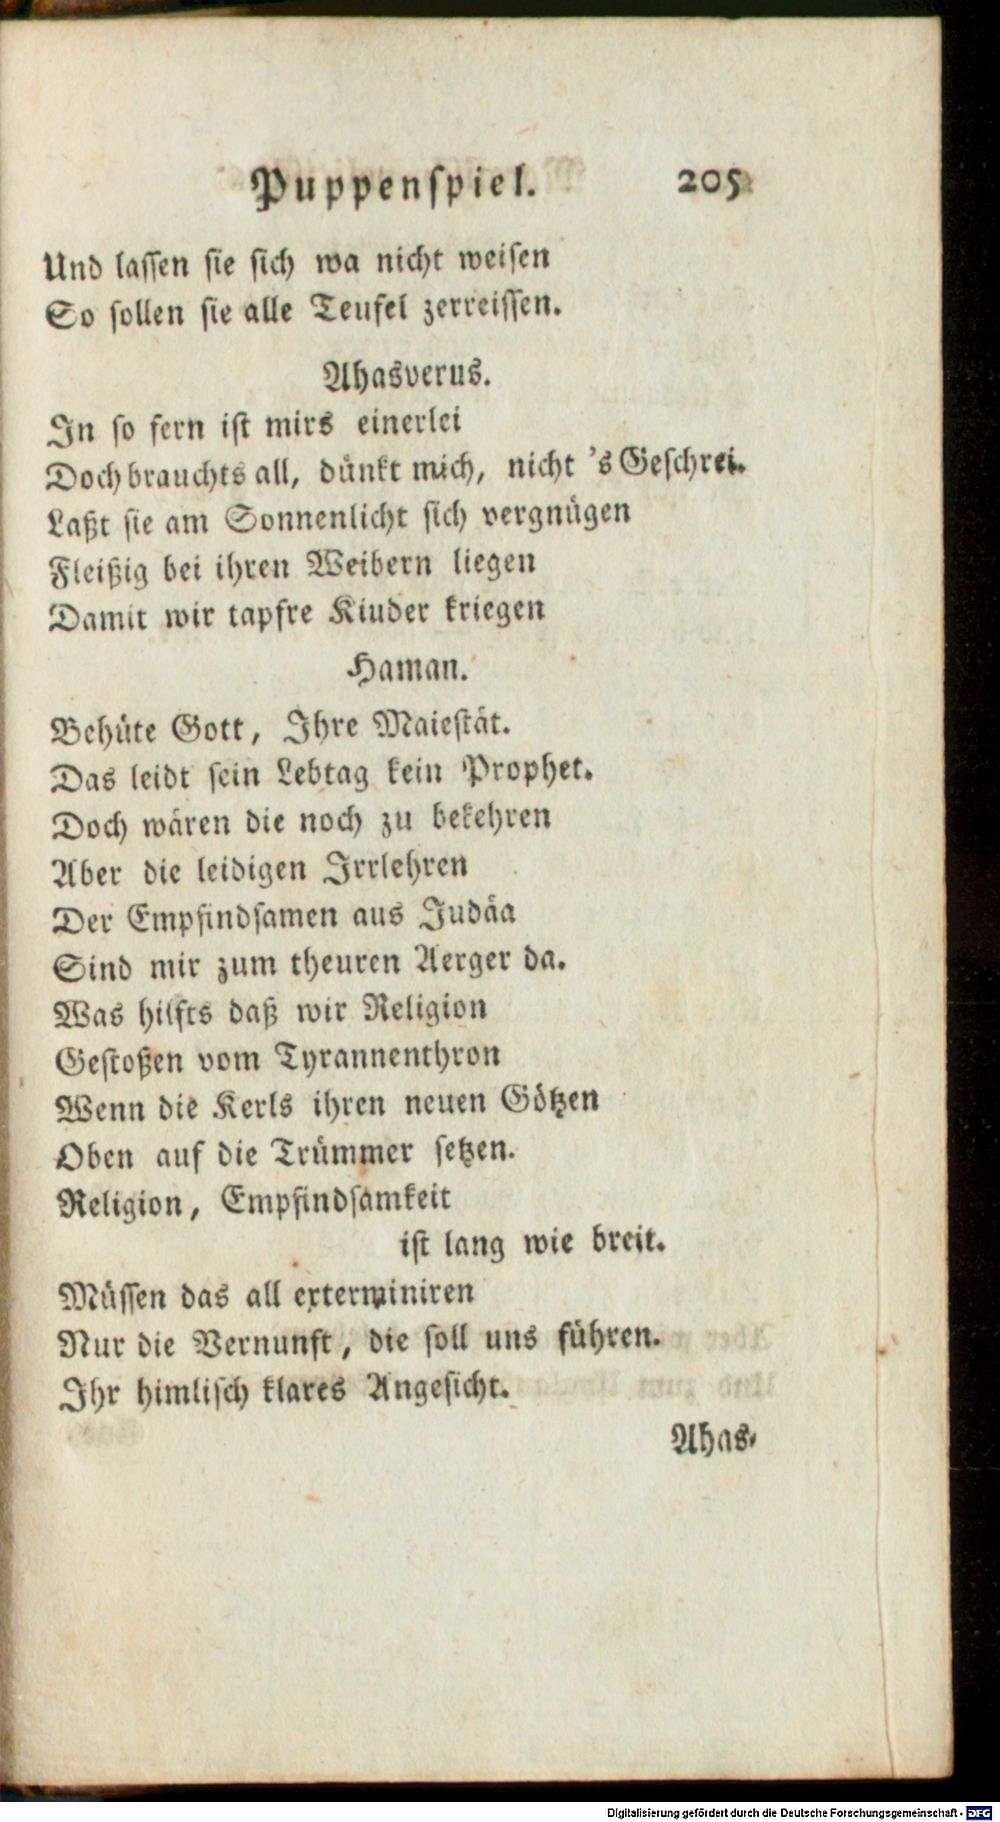 Puppenspiel. 205
Und lassen sie sich wa nicht weisen
So sollen sie alle Teufel zerreissen.
Ahasverus.
In so fern ist mirs einerlei
Doch brauchts all, dünkt mich, nicht 's Geschrei.
Laßt sie am Sonnenlicht sich vergnügen
Fleißig bei ihren Weibern liegen
Damit wir tapfre Kiuder kriegen
Haman.
Behüte Gott, Ihre Maiestät.
Das leidt sein Lebtag kein Prophet.
Doch wären die noch zu bekehren
Aber die leidigen Irrlehren
Der Empfindsamen aus Judäa
Sind mir zum theuren Aerger da.
Was hilfts daß wir Religion
Gestoßen vom Tyrannenthron
Wenn die Kerls ihren neuen Götzen
Oben auf die Trümmer setzen.
Religion, Empfindsamkeit
ist lang wie breit.
Müssen das all exterminiren
Nur die Vernunft, die soll uns führen.
Ihr himlisch klares Angesicht.
Ahas-
Digitalisierung gefördert durch die Deutsche Forschungsgemeinschaft - DFG